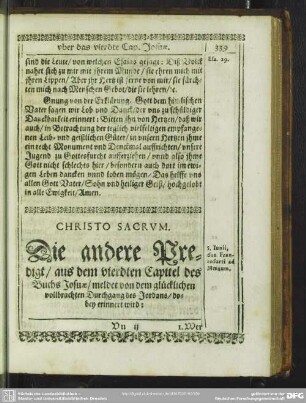 vber das vierdte Cap. Josuæ. 339
sind die Leute/ von welchen Esaias gesagt: Diß Volck
nahet sich zu mir mit ihrem Munde/ sie ehren mich mit
ihren Lippen/ Aber ihr Hertz ist ferne von mir/ sie fürch-
ten mich nach Menschen Gebot/ die sie lehren/ &c.
Esa. 29.
Gnung von der Erklärung. Gott dem himlischen
Vater sagen wir Lob vnd Danck/ der vns zu schüldiger
Danckbarkeit erinnert: Bitten ihn von Hertzen/ daß wir
auch/ in Betrachtung der teglich vielfeltigen empfange-
nen Leib- vnd geistlichen Güter/ in vnsern Hertzen ihme
ein recht Monument vnd Denckmal auffrichten/ vnsere
Jugend zu Gottesfurcht aufferziehen/ vnnd also ihme
Gott nicht schlechts hier/ besondern auch dort im ewi-
gen Leben dancken vnnd loben mögen. Das helffe vns
allen Gott Vater/ Sohn vnd heiliger Geist/ hochgelobt
in alle Ewigkeit/ Amen.
CHRISTO SACRVM.
Die andere Pre-
digt/ aus dem vierdten Capitel des
Buchs Josuæ/ meldet von dem glücklichen
vollbrachten Durchgang des Jordans/ do-
bey erinnert wird:
5. Junii,
Vu ij
1. Wer